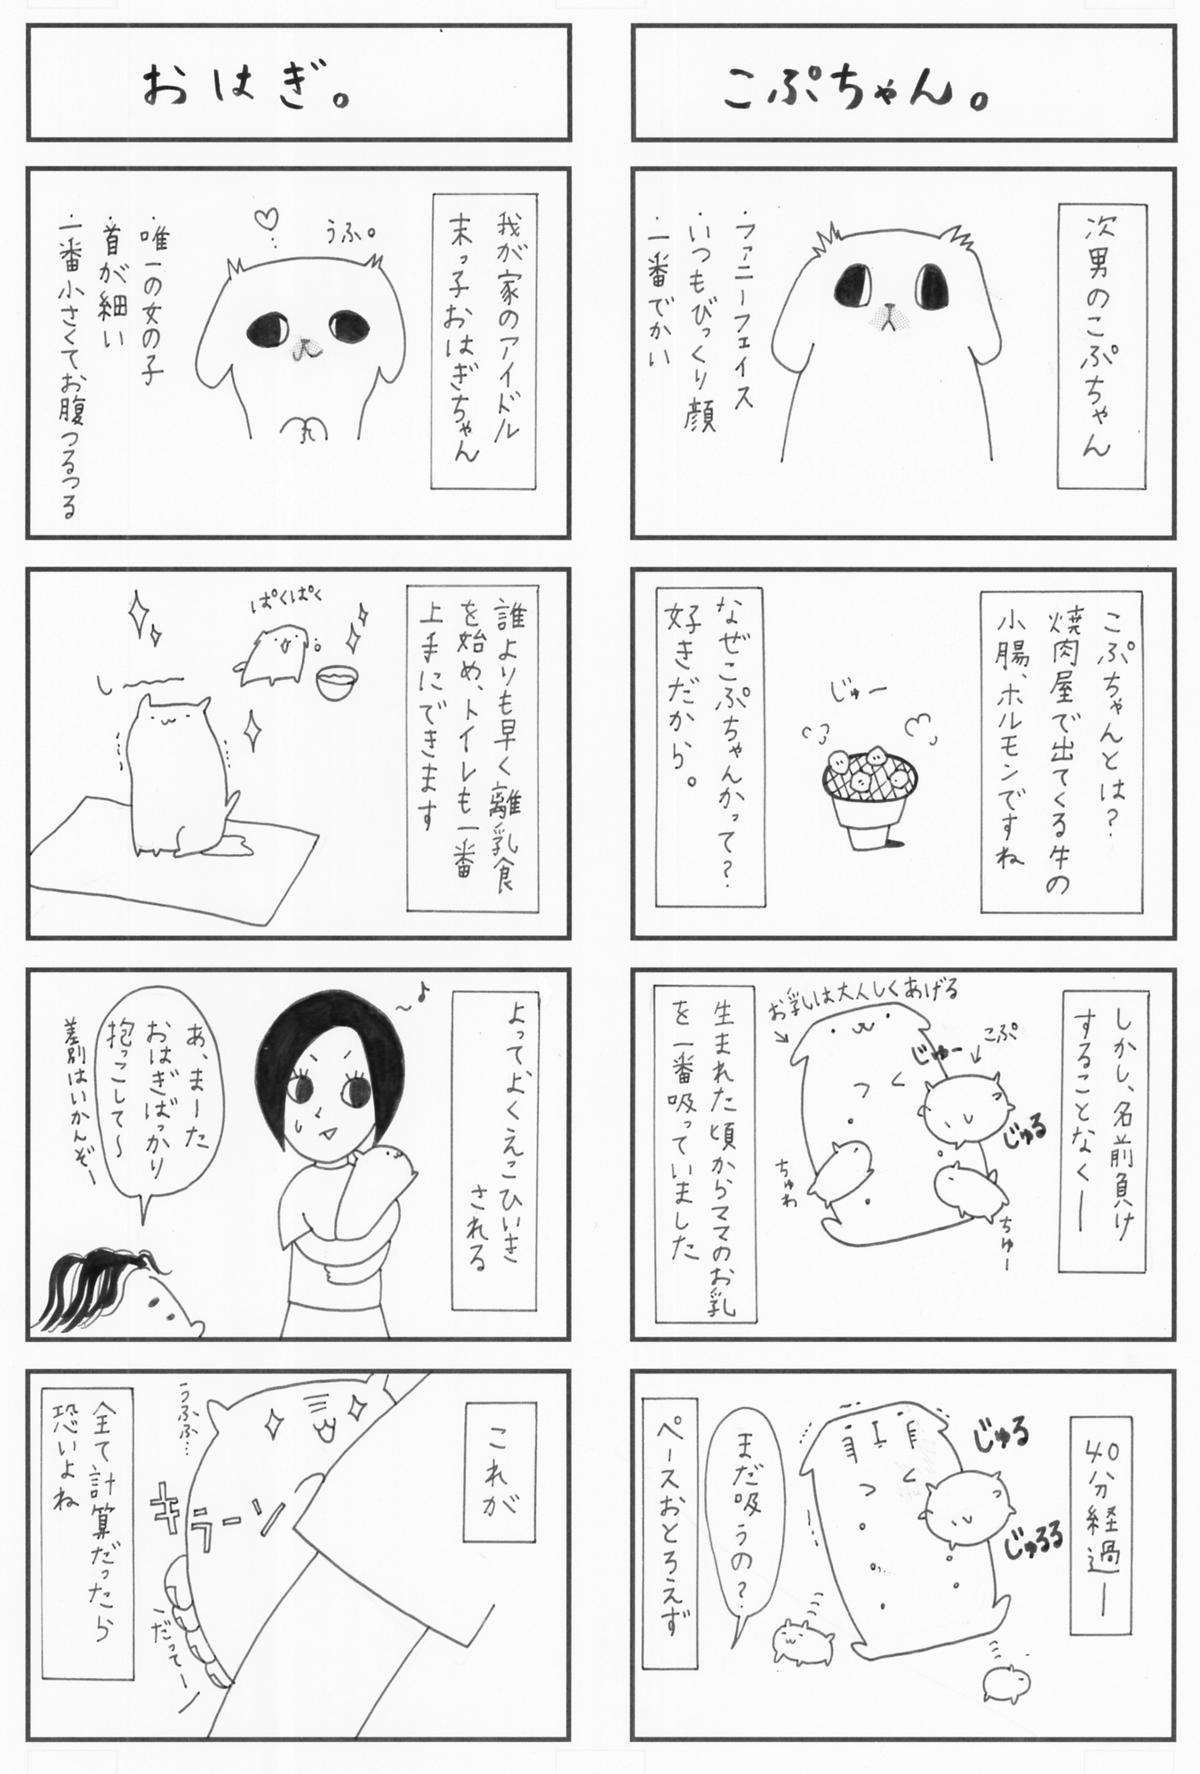 こぷちゃん。
次男のこぷちゃん
・ファニーフェイス
・いつもびっくり顔
・一番でかい
こぷちゃんとは?
焼肉屋で出てくる牛の
小腸、ホルモンですね
じゅー
なぜこぷちゃんかって?
好きだから。
しかし、名前負け
することなくー
お乳は大人しくあげる
こぷ
じゅー
じゅる
ちゅわ
ちゅー
生まれた頃からママのお乳
を一番吸っていました
40分経過ー
じゅる
じゅるる
まだ吸うの?
ペースおとろえず
おはぎ。
我が家のアイドル
末っ子おはぎちゃん
うふ。
・唯一の女の子
・首が細い
・一番小さくてお腹つるつる
誰よりも早く離乳食
を始め、トイレも一番
上手にできます
ぱくぱく
しーーー
よって、よくえこひいき
される
〜♪
あ、まーた
おはぎばっかり
抱っこして〜
差別はいかんぞー
これが
うふふ…
キラーン
だってー
全て計算だったら
恐いよね